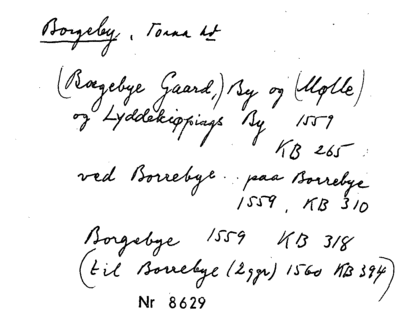 Borgeby, Torna hd
(Borgebye Gaard,) By og (Mølle)
og Lyddekiøpings By 1559
KB 265
ved Borrebye.. paa Borrebye
1559, KB 310
Borgebye 1559 KB 318
(til Borrebye (2ggr) 1560 KB 394)
Nr 8629